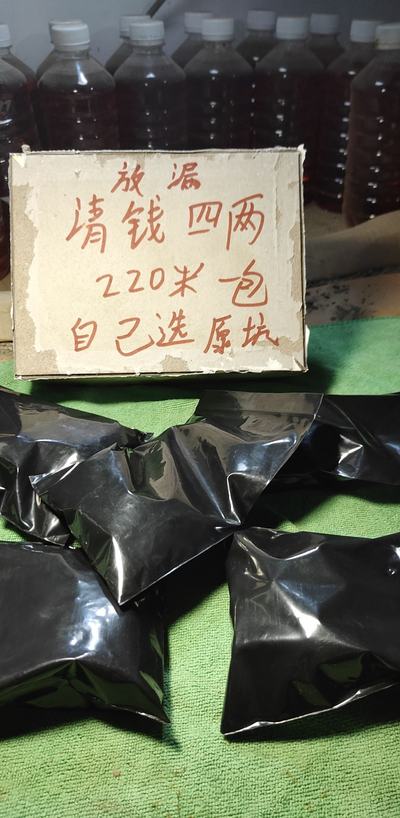 放漏
清钱四两
220米包
自己选原坑